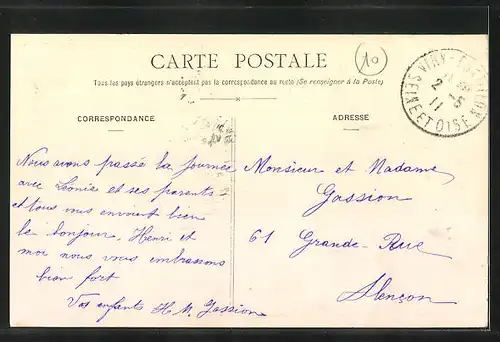 CARTE POSTALE
10
Tous les pays étrangers n'acceptent pas la correspondance au recto (Se renseigner à la Poste)
CORRESPONDANCE
ADRESSE
Nous avons passé la journée
avec Léonie et ses parents
et tous vous envoient bien
le bonjour. Henri et
moi nous vous embrassons
bien fort
Vos enfants H. M. Gassion
Monsieur et Madame
Gassion
61 Grande-Rue
Alençon
2 -5
11
SEINE ET OISE